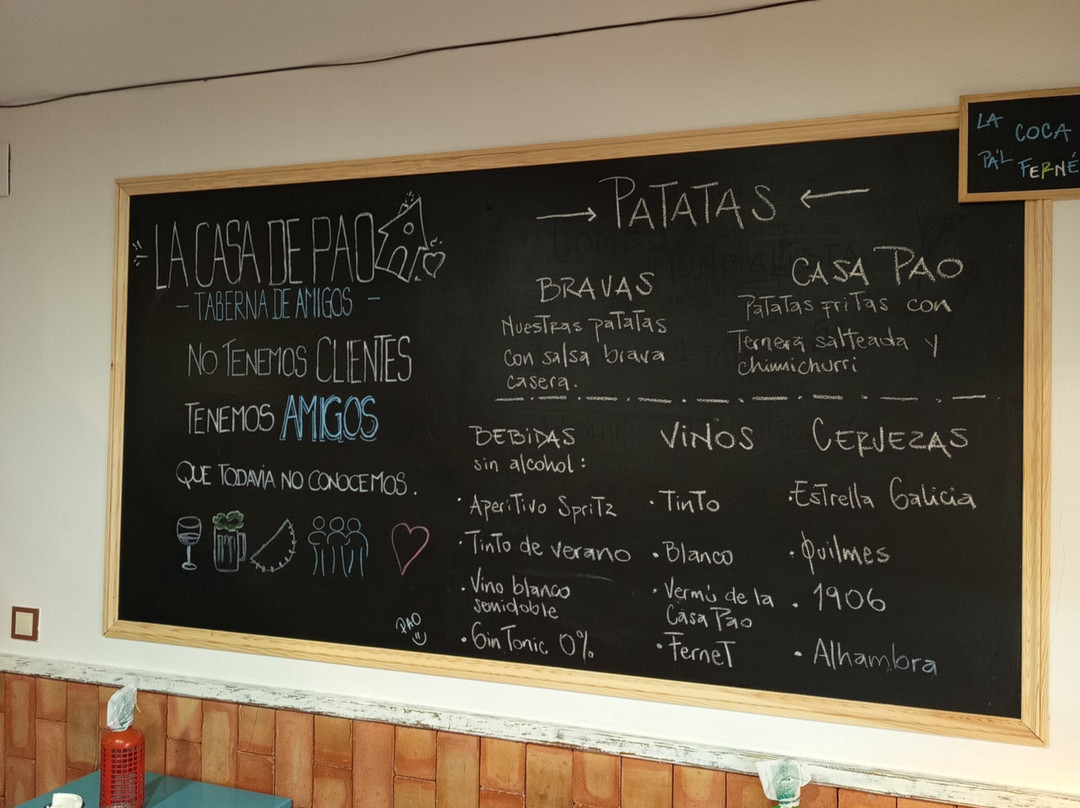 LA CASA DE PAO
- TABERNA DE AMIGOS -
NO TENEMOS CLIENTES
TENEMOS AMIGOS
QUE TODAVIA NO CONOCEMOS.
PAO
PATATAS
BRAVAS
Nuestras patatas
con salsa brava
casera.
CASA PAO
Patatas fritas con
Ternera salteada y
chimichurri
BEBIDAS
sin alcohol:
· Aperitivo Spritz
· Tinto de verano
· Vino blanco
semidoble
· Gin Tonic 0%
VINOS
· Tinto
· Blanco
· Vermú de la
Casa Pao
· Fernet
CERVEZAS
· Estrella Galicia
· Quilmes
· 1906
· Alhambra
LA COCA
PA'L FERNÉ